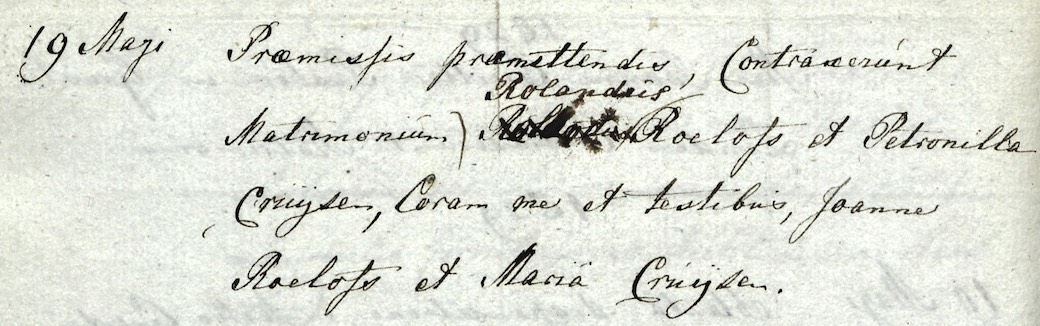 19 Maji Præmissis præmittendis Contraxerúnt
Rolandús
Matrimoniúm Roelofs et Petronilla
Crúijsen, Coram me et testibús, Joanne
Roelofs et Mariâ Crúijsen.